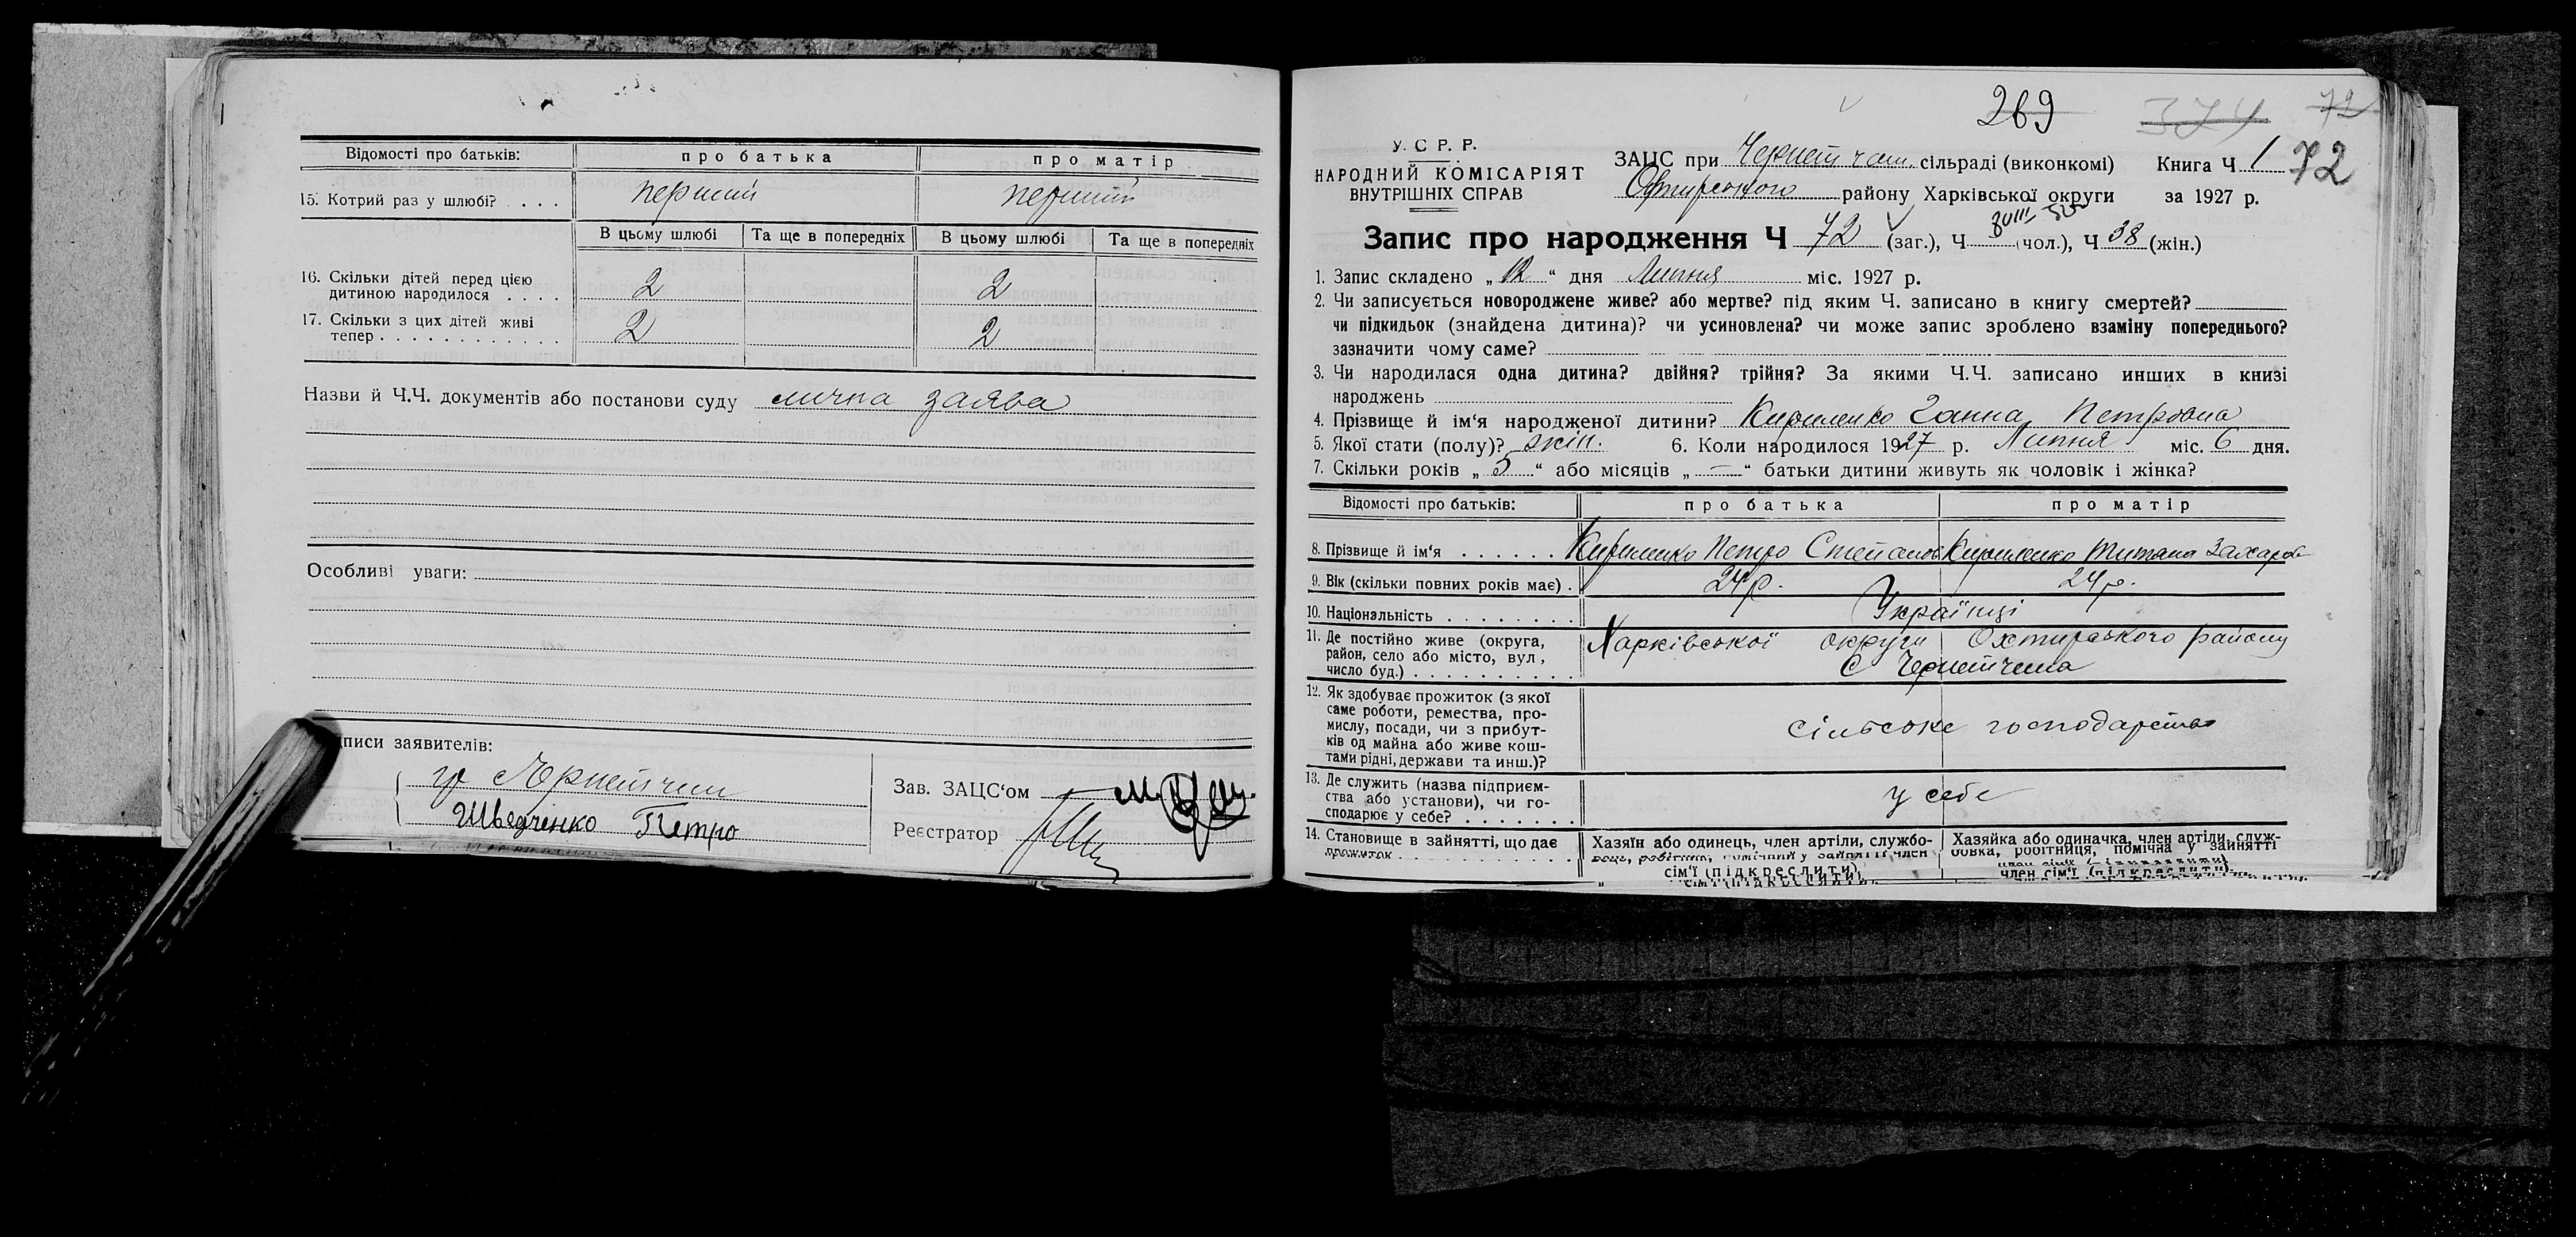 Відомості про батьків: про батька про матір
15. Котрий раз у шлюбі? . . . . перший перший
В цьому шлюбі Та ще в попередніх В цьому шлюбі Та ще в попередніх
16. Скільки дітей перед цією
дитиною народилося . . . . 2 2
17. Скільки з цих дітей живі
тепер . . . . . . . . . . . . . 2 2
Назви й Ч.Ч. документів або постанови суду лична заява
Особливі уваги:
писи заявителів:
гр
Шведченко Петро
Зав. ЗАЦС‘ом
Реєстратор
269 374 72
У. С Р. Р.
НАРОДНИЙ КОМІСАРІЯТ
ВНУТРІШНІХ СПРАВ
ЗАЦС при Чернетчан. сільраді (виконкомі) Книга Ч 1 72
району Харківської округи за 1927 р.
Запис про народження Ч 72 (заг.), Ч (чол.), Ч 38 (жін.)
1. Запис складено „ 12 “ дня Липня міс. 1927 р.
2. Чи записується новороджене живе? або мертве? під яким Ч. записано в книгу смертей?
чи підкидьок (знайдена дитина)? чи усиновлена? чи може запис зроблено взаміну попереднього?
зазначити чому саме?
3. Чи народилася одна дитина? двійня? трійня? За якими Ч.Ч. записано инших в книзі
народжень
4. Прізвище й ім‘я народженої дитини? Кириленко Ганна Петровна
5. Якої стати (полу)? жін. 6. Коли народилося 1927 р. Липня міс. 6 дня.
7. Скільки років „ 5 “ або місяців „ — “ батьки дитини живуть як чоловік і жінка?
Відомості про батьків: про батька про матір
8. Прізвище й ім‘я . . . . . . Кириленко Петро Степанов Кириленко Титяна Захаров
9. Вік (скільки повних років має) . 24 р. 24 р.
10. Національність . . . . . . . . Українці
11. Де постійно живе (округа, Харківської округи Охтирського району
район, село або місто, вул., С Чернетчина
число буд.) . . . . . . . . . .
12. Як здобуває прожиток (з якої
саме роботи, ремества, про-
мислу, посади, чи з прибут- сільське господарство
ків од майна або живе кош-
тами рідні, держави та инш.)?
13. Де служить (назва підприєм-
ства або установи), чи го- у себе
сподарює у себе? . . . . . . .
14. Становище в зайнятті, що дає Хазяїн або одинець, член артіли, службо- Хазяйка або одиначка, член артіли, служ-
прожиток . . . . . . . . . . . вець, робітник, помічний у зайнятті член бовка, робітниця, помічна у зайнятті
сім'ї (підкреслити) член сім'ї (підкреслити)